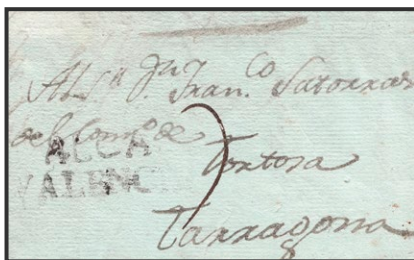 Al Sr. Dn. Franco. Satorras
del Como. de
ALCA
VALENC
Tortosa
Tarragona